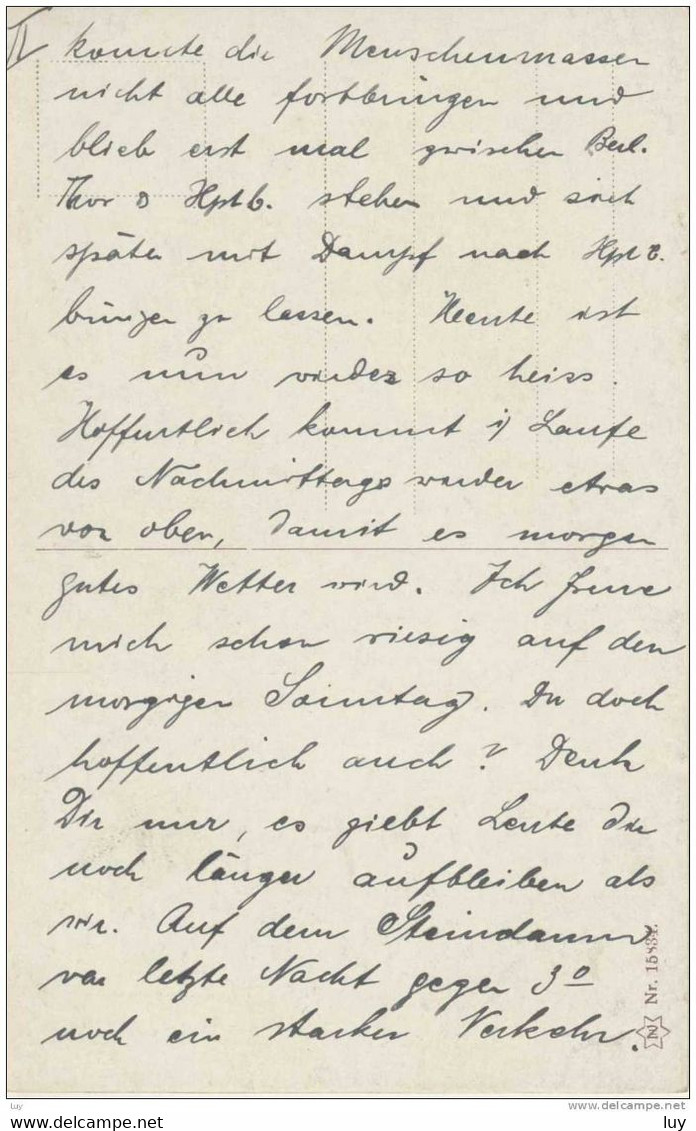 II konnte die Menschenmassen
nicht alle fortbringen und
blieb erst mal zwischen Berl.
Thor & Hptb. stehen und sich
später mit Dampf nach Hptb.
bringen zu lassen. Heute ist
es nun wieder so heiss.
Hoffentlich kommt i/ Laufe
des Nachmittags wieder etwas
von oben, damit es morgen
gutes Wetter wird. Ich freue
mich schon riesig auf den
morgigen Sonntag. Du doch
hoffentlich auch? Denk
Dir nur, es giebt Leute die
noch länger aufbleiben als
wir. Auf dem Steindamm
war letzte Nacht gegen 3º
noch ein starker Verkehr.
Nr. 15834.
luy
delcampe.net
luy
luy
luy